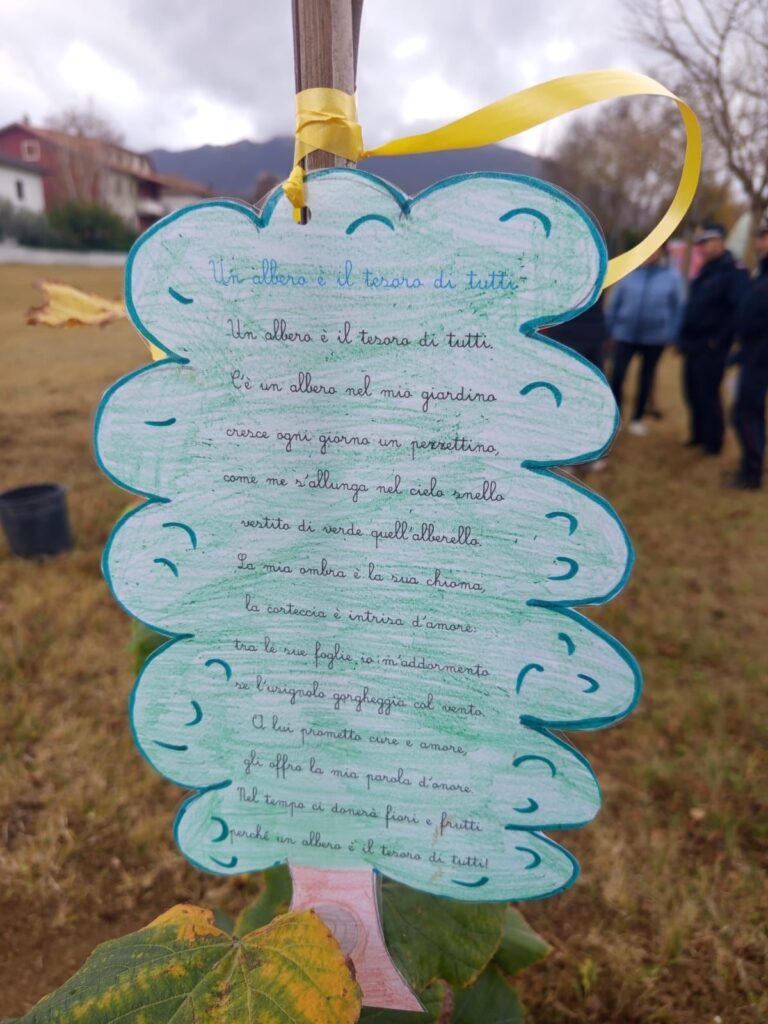 Un albero è il tesoro di tutti.
Un albero è il tesoro di tutti.
C'è un albero nel mio giardino
cresce ogni giorno un pezzettino,
come me s'allunga nel cielo snello
vestito di verde quell'alberello.
La mia ombra è la sua chioma,
la corteccia è intrisa d'amore:
tra le sue foglie, io m'addormento
se l'usignolo gorgheggia col vento.
A lui prometto cure e amore,
gli offro la mia parola d'onore.
Nel tempo ci donerà fiori e frutti
perché un albero è il tesoro di tutti!